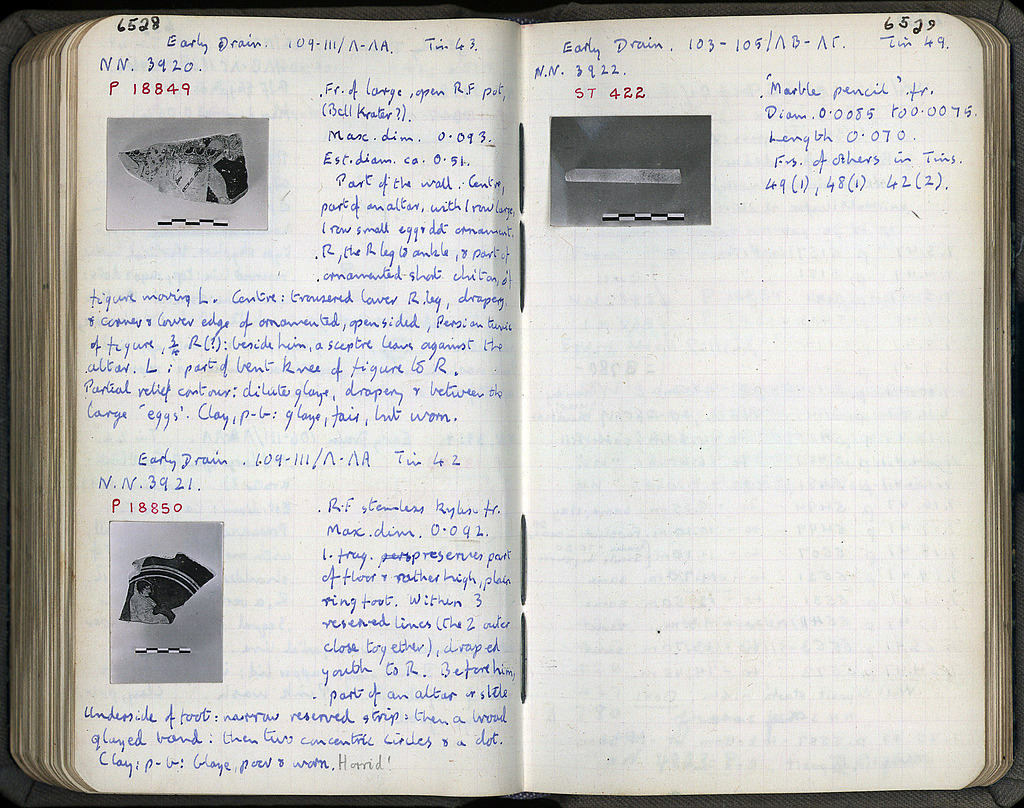 6528
Early Drain. 109-111/Λ-ΛA. Tin 43.
N.N. 3920.
P 18849
Fr. of large, open R.F pot,
(Bell Krater?).
Max. dim. 0.093.
Est. diam. ca. 0.51.
Part of the wall. Centre,
part of an altar, with 1 row large,
1 row small egg & dot ornament.
R, the R leg to ankle, & part of
ornamented short chiton, of
figure moving L. Centre: trousered lower R. leg, drapery
& corner & lower edge of ornamented, open sided, Persian tunic
of figure, 3/4 R(?): beside him, a sceptre leans against the
altar. L: part of bent knee of figure to R.
Partial relief contour: dilute glaze, drapery & between the
large 'eggs'. Clay, p-b: glaze, fair, but worn.
Early Drain. 109-111/Λ-ΛA Tin 42
N.N. 3921.
P 18850
R.F stemless kylix fr.
Max. dim. 0.092.
1. frag. preserves part
of floor & rather high, plain
ring foot. Within 3
reserved lines (the 2 outer
close together), draped
youth to R. Before him,
part of an altar or stele
Underside of foot: narrow reserved strip: then a broad
glazed band: then two concentric circles & a dot.
Clay: p-b: Glaze, poor & worn. Horrid!
6529
Early Drain. 103-105/ΛB-ΛΓ. Tin 49.
N.N. 3922.
ST 422
"Marble pencil" fr.
Diam. 0.0085 to 0.0075.
Length 0.070.
Frs. of others in Tins.
49(1), 48(1) 42(2).